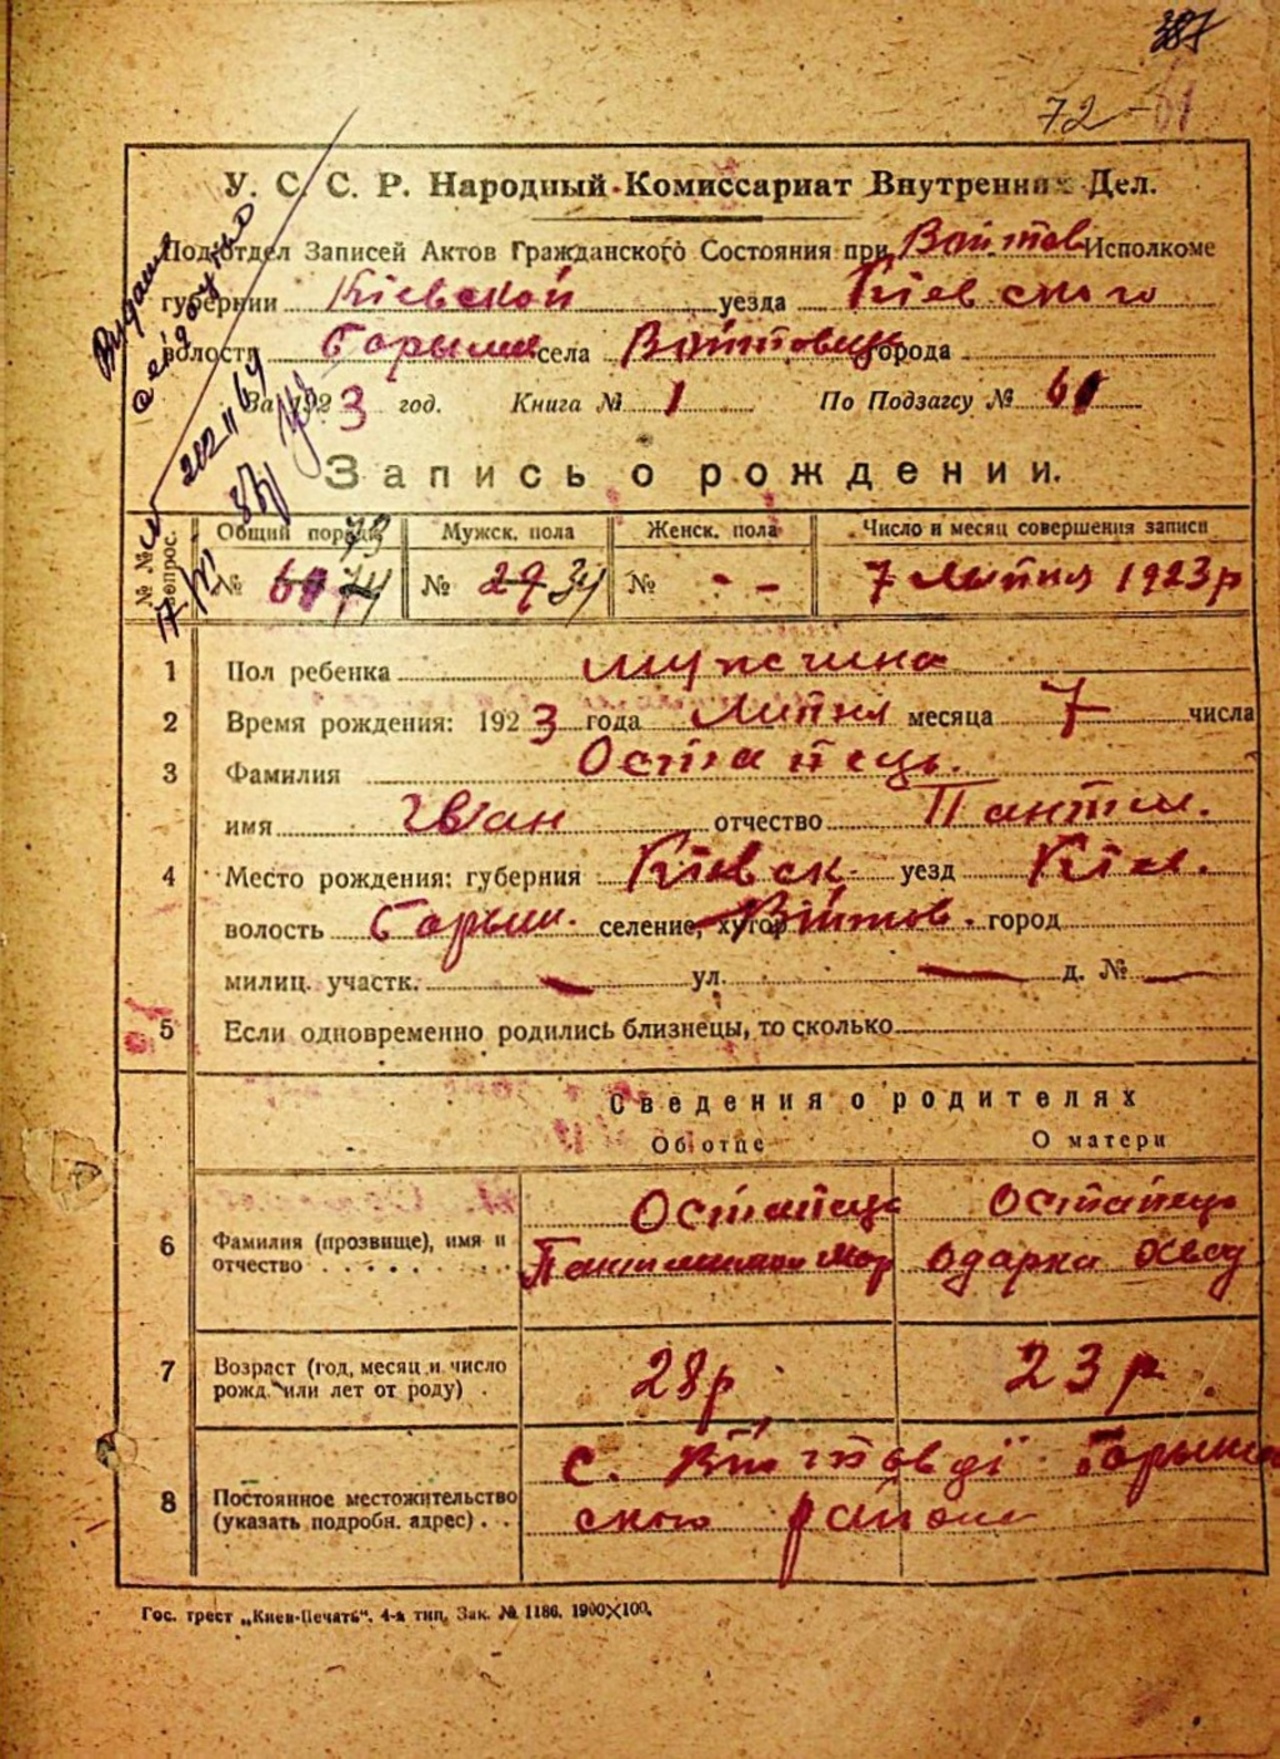 387
72-61
У. С. С. Р. Народный Комиссариат Внутренних Дел.
Подотдел Записей Актов Гражданского Состояния при Войтов Исполкоме
губернии Кіевской уезда Кіевского
волости Барыш села Войтовец города
За 1923 год. Книга № 1 По Подзагсу № 61
Запись о рождении.
№№ вопрос. Общий поряд. Мужск. пола Женск. пола Число и месяц совершения записи
73
№ 74 № 29 34 № - - 7 Липня 1923р
1 Пол ребенка мужчина
2 Время рождения: 1923 года Липня месяца 7 числа
3 Фамилия Остапець.
имя Иван отчество Пантел.
4 Место рождения: губерния Кіевск. уезд Кіев.
волость Барыш. селение, хутор Війтов. город
милиц. участк. — ул. — д. № —
5 Если одновременно родились близнецы, то сколько
Сведения о родителях
Об отце О матери
Остапець Остапець
6 Фамилия (прозвище), имя и отчество Одарка
7 Возраст (год, месяц и число рожд. или лет от роду) . 28р 23р
с. Війтовці Барыш
8 Постоянное местожительство (указать подробн. адрес) . . ского района
Гос. трест „Киев-Печать“. 4-я тип. Зак. № 1186. 1900×100.